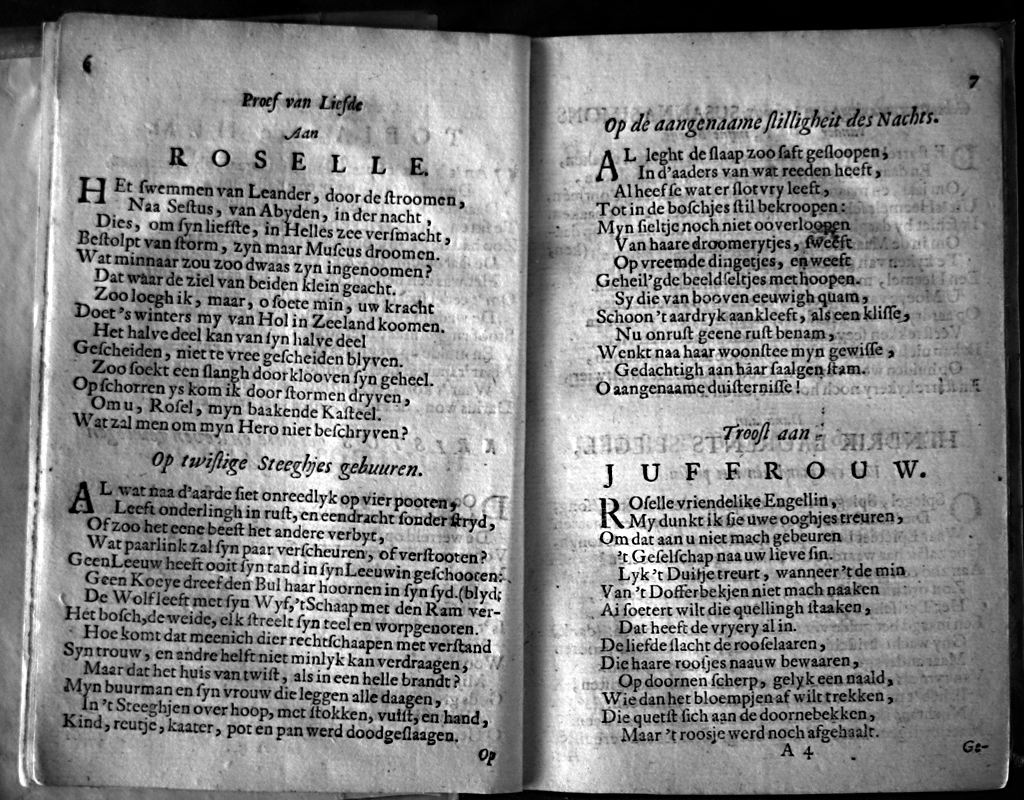 6
Proef van Liefde
Aan
ROSELLE.
HEt swemmen van Leander, door de stroomen,
Naa Sestus, van Abyden, in der nacht,
Dies, om syn liefste, in Helles zee versmacht,
Bestolpt van storm, zyn maar Muscus droomen.
Wat minnaar zou zoo dwaas zyn ingenoomen?
Dat waar de ziel van beiden klein geacht.
Zoo loegh ik, maar, o soete min, uw kracht
Doet 's winters my van Hol in Zeeland koomen.
Het halve deel kan van syn halve deel
Gescheiden, niet te vree gescheiden blyven.
Zoo soekt een slangh doorklooven syn geheel.
Op schorren ys kom ik door stormen dryven,
Om u, Rosel, myn baakende Kasteel.
Wat zal men om myn Hero niet beschryven?
Op twistige Steeghjes gebuuren.
AL wat naa d'aarde siet onreedlyk op vier pooten,
Leeft onderlingh in rust, en eendracht sonder stryd,
Of zoo het eene beest het andere verbyt,
Wat paarlink zal syn paar verscheuren, of verstooten?
Geen Leeuw heeft ooit syn tand in syn Leeuwin geschooten;
Geen Koeye dreef den Bul haar hoornen in syn syd. (blyd;
De Wolf leeft met syn Wyf, 't Schaap met den Ram ver-
Het bosch, de weide, elk streelt syn teel en worpgenoten.
Hoe komt dat meenich dier rechtschaapen met verstand
Syn trouw, en andre helft niet minlyk kan verdraagen,
Maar dat het huis van twist, als in een helle brandt?
Myn buurman en syn vrouw die leggen alle daagen,
In 't Steeghjen over hoop, met stokken, vuist, en hand,
Kind, reutje, kaater, pot en pan werd doodgeslaagen.
Op
7
Op de aangenaame stilligheit des Nachts.
AL leght de slaap zoo saft geslopen,
In d'aaders van wat reeden heeft,
Al heefse wat er slotvry leeft,
Tot in de boschjes stil bekroopen:
Myn sieltje noch niet ooverloopen
Van haare droomerytjes, sweeft
Op vreemde dingetjes, en weeft
Geheil'gde beeldseltjes met hoopen.
Sy die van booven eeuwigh quam,
Schoon 't aardryk aankleeft, als een klisse,
Nu onrust geene rust benam,
Wenkt naa haar woonstee myn gewisse,
Gedachtigh aan haar saalgen stam.
O aangenaame duisternisse!
Troost aan
JUFFROUW.
ROselle vriendelike Engellin,
My dunkt ik sie uwe ooghjes treuren,
Om dat aan u niet mach gebeuren
't Geselschap naa uw lieve sin.
Lyk 't Duifje treurt, wanneer 't de min
Van 't Dofferbekjen niet mach naaken
Ai soetert wilt die quellingh staaken,
Dat heeft de vryery al in.
De liefde slacht de rooselaaren,
Die haare roosjes naauw bewaaren,
Op doornen scherp, gelyk een naald,
Wie dan het bloempjen af wilt trekken,
Die quetst sich aan de doornebekken,
Maar 't roosje werd noch afgehaalt.
A 4
Ge-